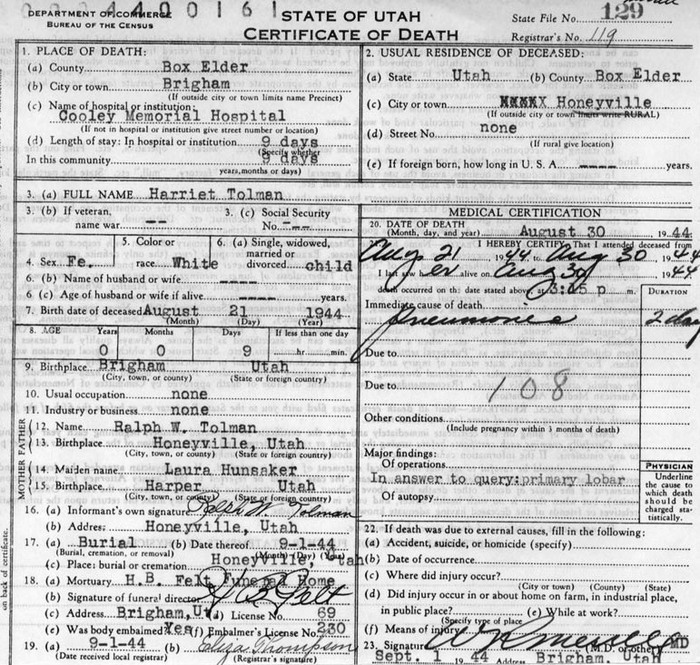 DEPARTMENT OF COMMERCE
BUREAU OF THE CENSUS
4400161
STATE OF UTAH
CERTIFICATE OF DEATH
State File No. 129
Registrar's No. 119
1. PLACE OF DEATH:
(a) County Box Elder
(b) City or town Brigham
(If outside city or town limits name Precinct)
(c) Name of hospital or institution:
Cooley Memorial Hospital
(If not in hospital or institution give street number or location)
(d) Length of stay: In hospital or institution 9 days
(Specify whether
In this community 9 days
years, months or days)
2. USUAL RESIDENCE OF DECEASED:
(a) State Utah (b) County Box Elder
(c) City or town XXXXX Honeyville
(If outside city or town limits write RURAL)
(d) Street No. none
(If rural give location)
(e) If foreign born, how long in U. S. A. ---- years.
3. (a) FULL NAME Harriet Tolman
3. (b) If veteran, name war --
3. (c) Social Security No. ---
4. Sex Fe.
5. Color or race White
6. (a) Single, widowed, married or divorced child
6. (b) Name of husband or wife ----
6. (c) Age of husband or wife if alive ---- years.
7. Birth date of deceased August 21 1944
(Month) (Day) (Year)
8. AGE Years Months Days If less than one day
0 0 9 hr. min.
9. Birthplace Brigham Utah
(City, town, or county) (State or foreign country)
10. Usual occupation none
11. Industry or business none
FATHER
12. Name Ralph W. Tolman
13. Birthplace Honeyville, Utah
(City, town, or county) (State or foreign country)
MOTHER
14. Maiden name Laura Hunsaker
15. Birthplace Harper Utah
(City, town, or county) (State or foreign country)
16. (a) Informant's own signature Ralph W Tolman
(b) Address Honeyville, Utah
17. (a) Burial (b) Date thereof 9-1-44
(Burial, cremation, or removal) (Month) (Day) (Year)
(c) Place: burial or cremation Honeyville, Utah
18. (a) Mortuary H.B. Felt Funeral Home
(b) Signature of funeral director H B Felt
(c) Address Brigham, Ut License No. 69
(e) Was body embalmed Yes Embalmer's License No. 230
19. (a) 9-1-44 (b) Eliza Thompson
(Date received local registrar) (Registrar's signature)
MEDICAL CERTIFICATION
20. DATE OF DEATH
(Month, day, and year) August 30 1944
I HEREBY CERTIFY That I attended deceased from
Aug 21 1944 to Aug 30, 1944
I last saw er alive on Aug 30 1944
death occurred on the date stated above, at 3:15 p m.
DURATION
Immediate cause of death
Pneumonia 2 day
Due to
Due to
108
Other conditions
(Include pregnancy within 3 months of death)
Major findings:
Of operations
In answer to query:primary lobar
Of autopsy
PHYSICIAN
Underline
the cause to
which death
should be
charged sta-
tistically.
22. If death was due to external causes, fill in the following:
(a) Accident, suicide, or homicide (specify)
(b) Date of occurrence
(c) Where did injury occur?
(City or town) (County) (State)
(d) Did injury occur in or about home on farm, in industrial place,
in public place? (e) While at work?
(Specify type of place)
(f) Means of injury
23. Signature MD
(M.D. or other)
Sept. 1 1944 Address Brigham Utah
on back of certificate.